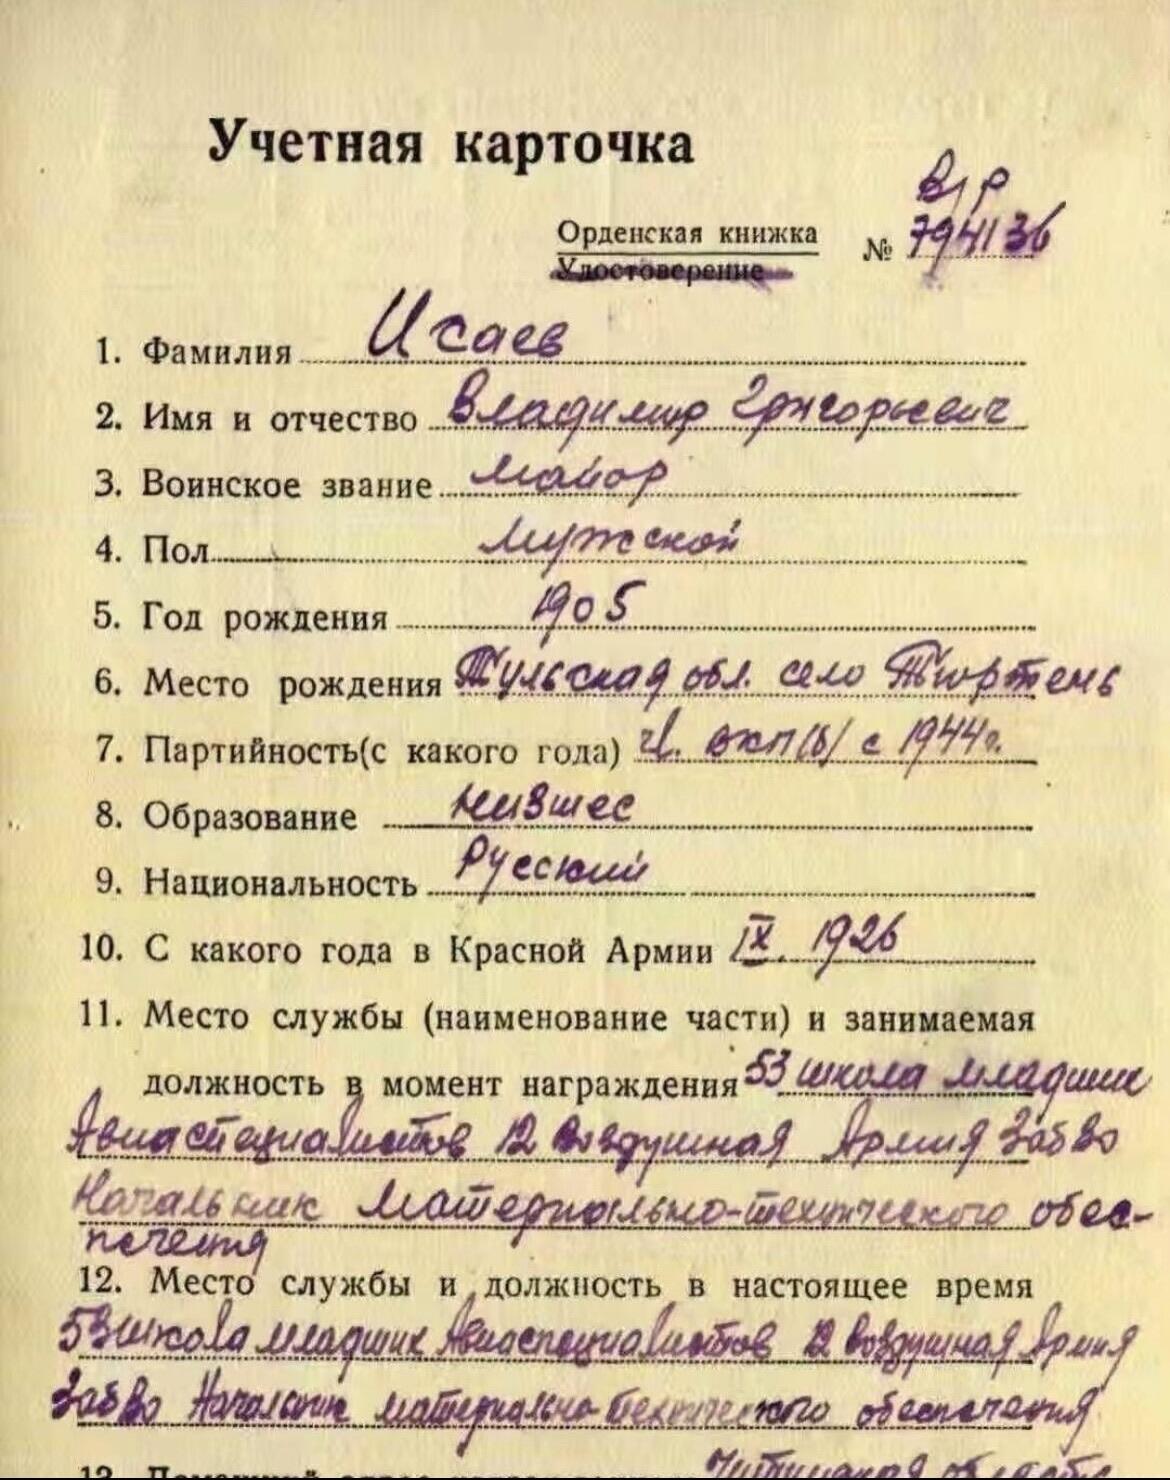 Учетная карточка
В/р
Орденская книжка № 794136
Удостоверение
1. Фамилия Исаев
2. Имя и отчество Владимир Григорьевич
3. Воинское звание Майор
4. Пол Мужской
5. Год рождения 1905
6. Место рождения Тульская обл. село Тюртень
7. Партийность(с какого года) чл. ВКП(б) с 1944г.
8. Образование низшее
9. Национальность Русский
10. С какого года в Красной Армии IX. 1926
11. Место службы (наименование части) и занимаемая
должность в момент награждения 53 школа младших
Авиаспециалистов 12 Воздушная Армия ЗабВО
Начальник Материально-технического обес-
печения
12. Место службы и должность в настоящее время
53 школа младших Авиаспециалистов 12 воздушная Армия
ЗабВО Начальник материально-технического обеспечения
13. Домашний адрес Читинская область